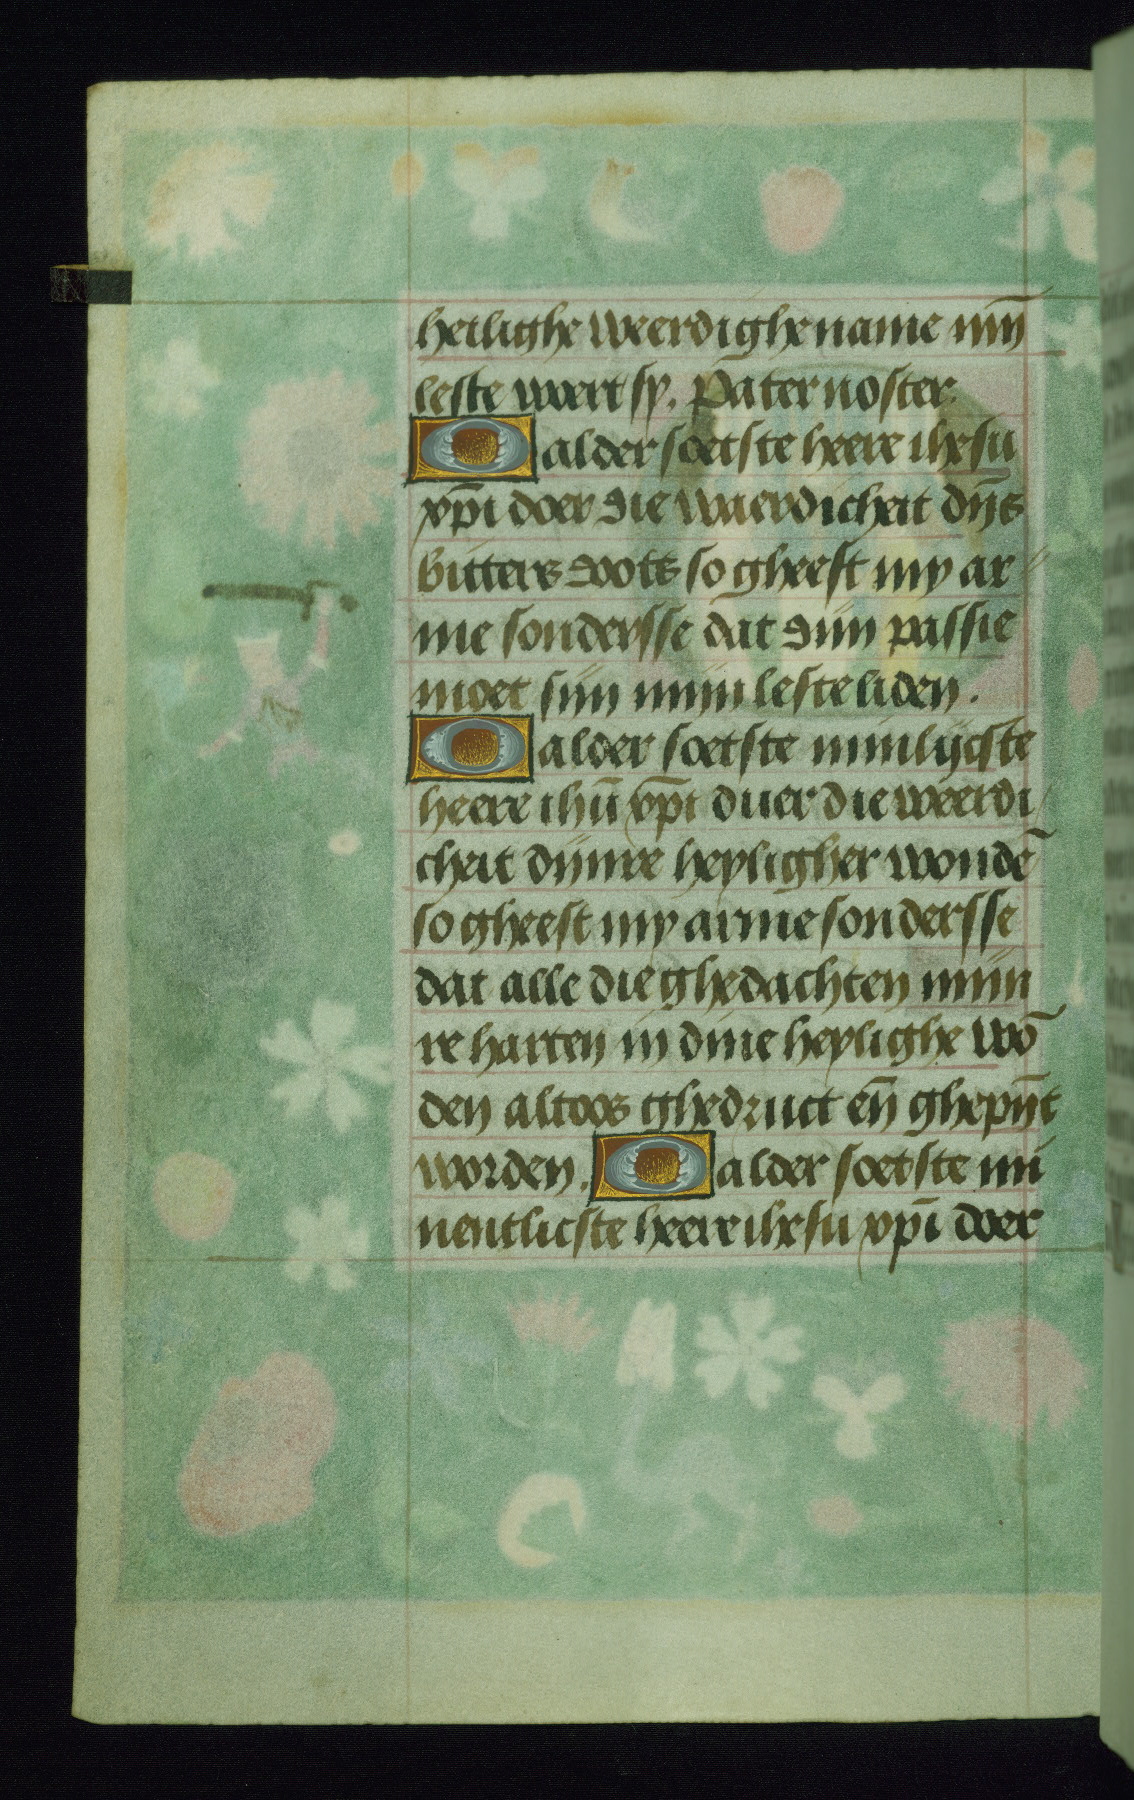 heilighe weerdighe name mȳ
leste woert sy. Pater noster.
O alder soetste heere ihesu
xp̄i doer die waerdicheit dȳs
bitters doots so gheeft my ar
me sondersse dat dijn passie
moet sijn mijn leste liden.
O alder soetste minlijcste
heere ihū xp̄i duer die weerdi
cheit dijnre heyligher wondē
so gheeft my arme sondersse
dat alle die ghedachten mijn
re harten in dine heylighe wō
den altoos ghedruct eñ ghepȳt
worden. O alder soetste mi
nentlicste heere ihesu xp̄i doer